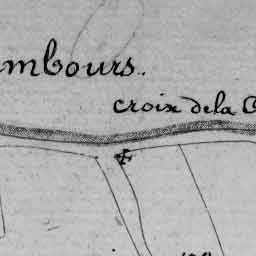 mbours.
croix de la